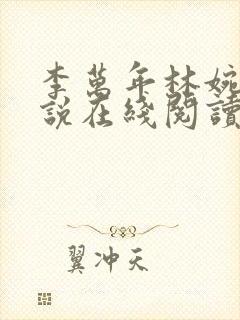 李萬年林婉
說在綫閱讀
翼冲天